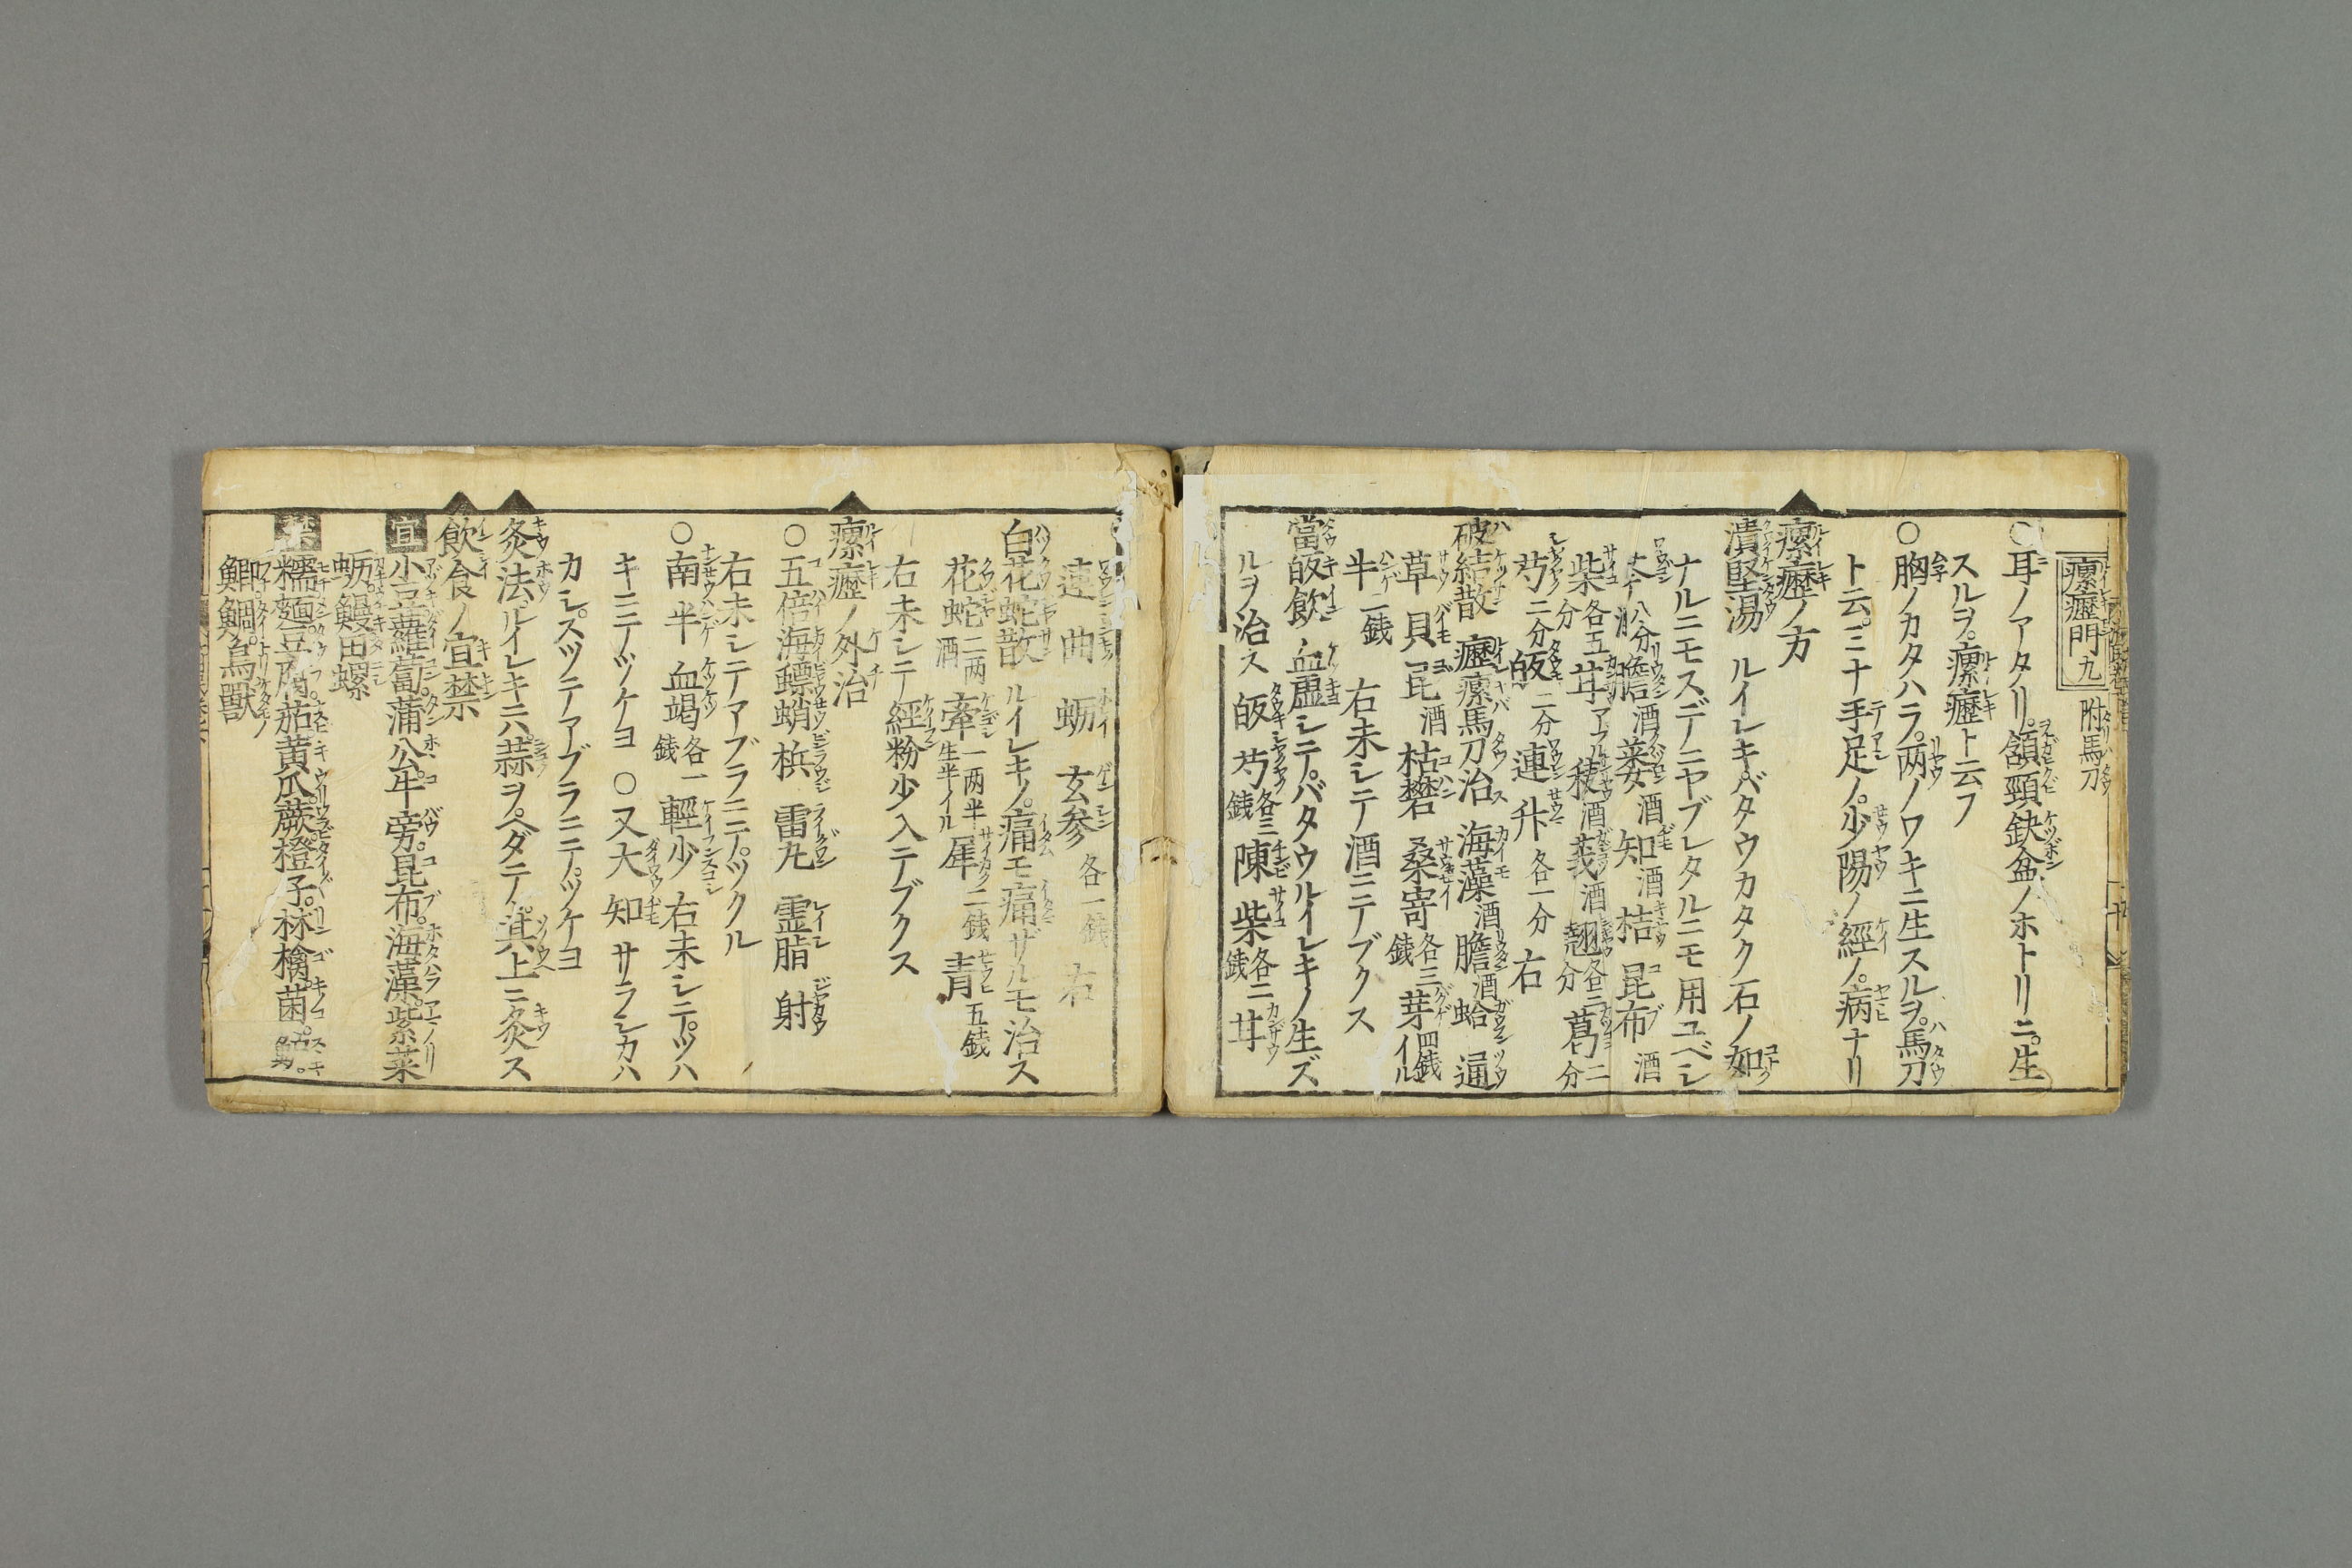 瘰癧門九 附馬刀
○耳ノアタリ。頷頸缺盆ノホトリニ。生
スルヲ。瘰癧ト云フ
○胸ノカタハラ。両ノワキニ生スルヲ。馬刀
ト云。ミナ手足ノ。少陽ノ經ノ。病ナリ
瘰癧ノ方
潰堅湯 ルイレキ。バタウカタク石ノ如
ナルニモスデニヤブレタルニモ用ユベシ
八分 膽酒 蔞酒 知酒 桔 昆布 酒
柴各五分 苷アブル 稜酒 莪酒 翹各三分 葛二分
芍二分 皈二分 連 升各一分 右
破結散 癧瘰馬刀治ス 海藻酒 膽酒 蛤 通
草 貝 昆酒 枯礬 桑寄各三錢 芽四錢イル
半二錢 右末シテ酒ニテブクス
當皈飲 血虚シテ。バタウルイレキノ生ズ
ルヲ治ス 皈 芍各三錢 陳 柴各二錢 苷
連 曲 蛎 玄参各一錢 右
白花蛇散 ルイレキノ。痛モ痛ザルモ治ス
花蛇二两酒 牽一两半生半イル 犀二錢 青五錢
右末シテ 經粉少入テブクス
瘰癧ノ外治
○五倍 海螵蛸 梹 雷丸 霊脂 射
右末シテアブラニテ。ツクル
○南 半 血竭各一錢 輕少 右末シテ。ツハ
キニテツケヨ ○又大 知 サラシカハ
カシ。スツテアブラニテ。ツケヨ
灸法 ルイレキニハ蒜ヲ。ヘダテ。其上ニ灸ス
飲食ノ宜禁
宜 小豆蘿蔔。蒲公。牛旁。昆布。海藻。紫菜
蛎。鰻。田螺
禁 糯。麺。豆腐。茄。黄瓜。蕨。橙子。林檎。菌。鱸。
鯽。鯛。鳥獸